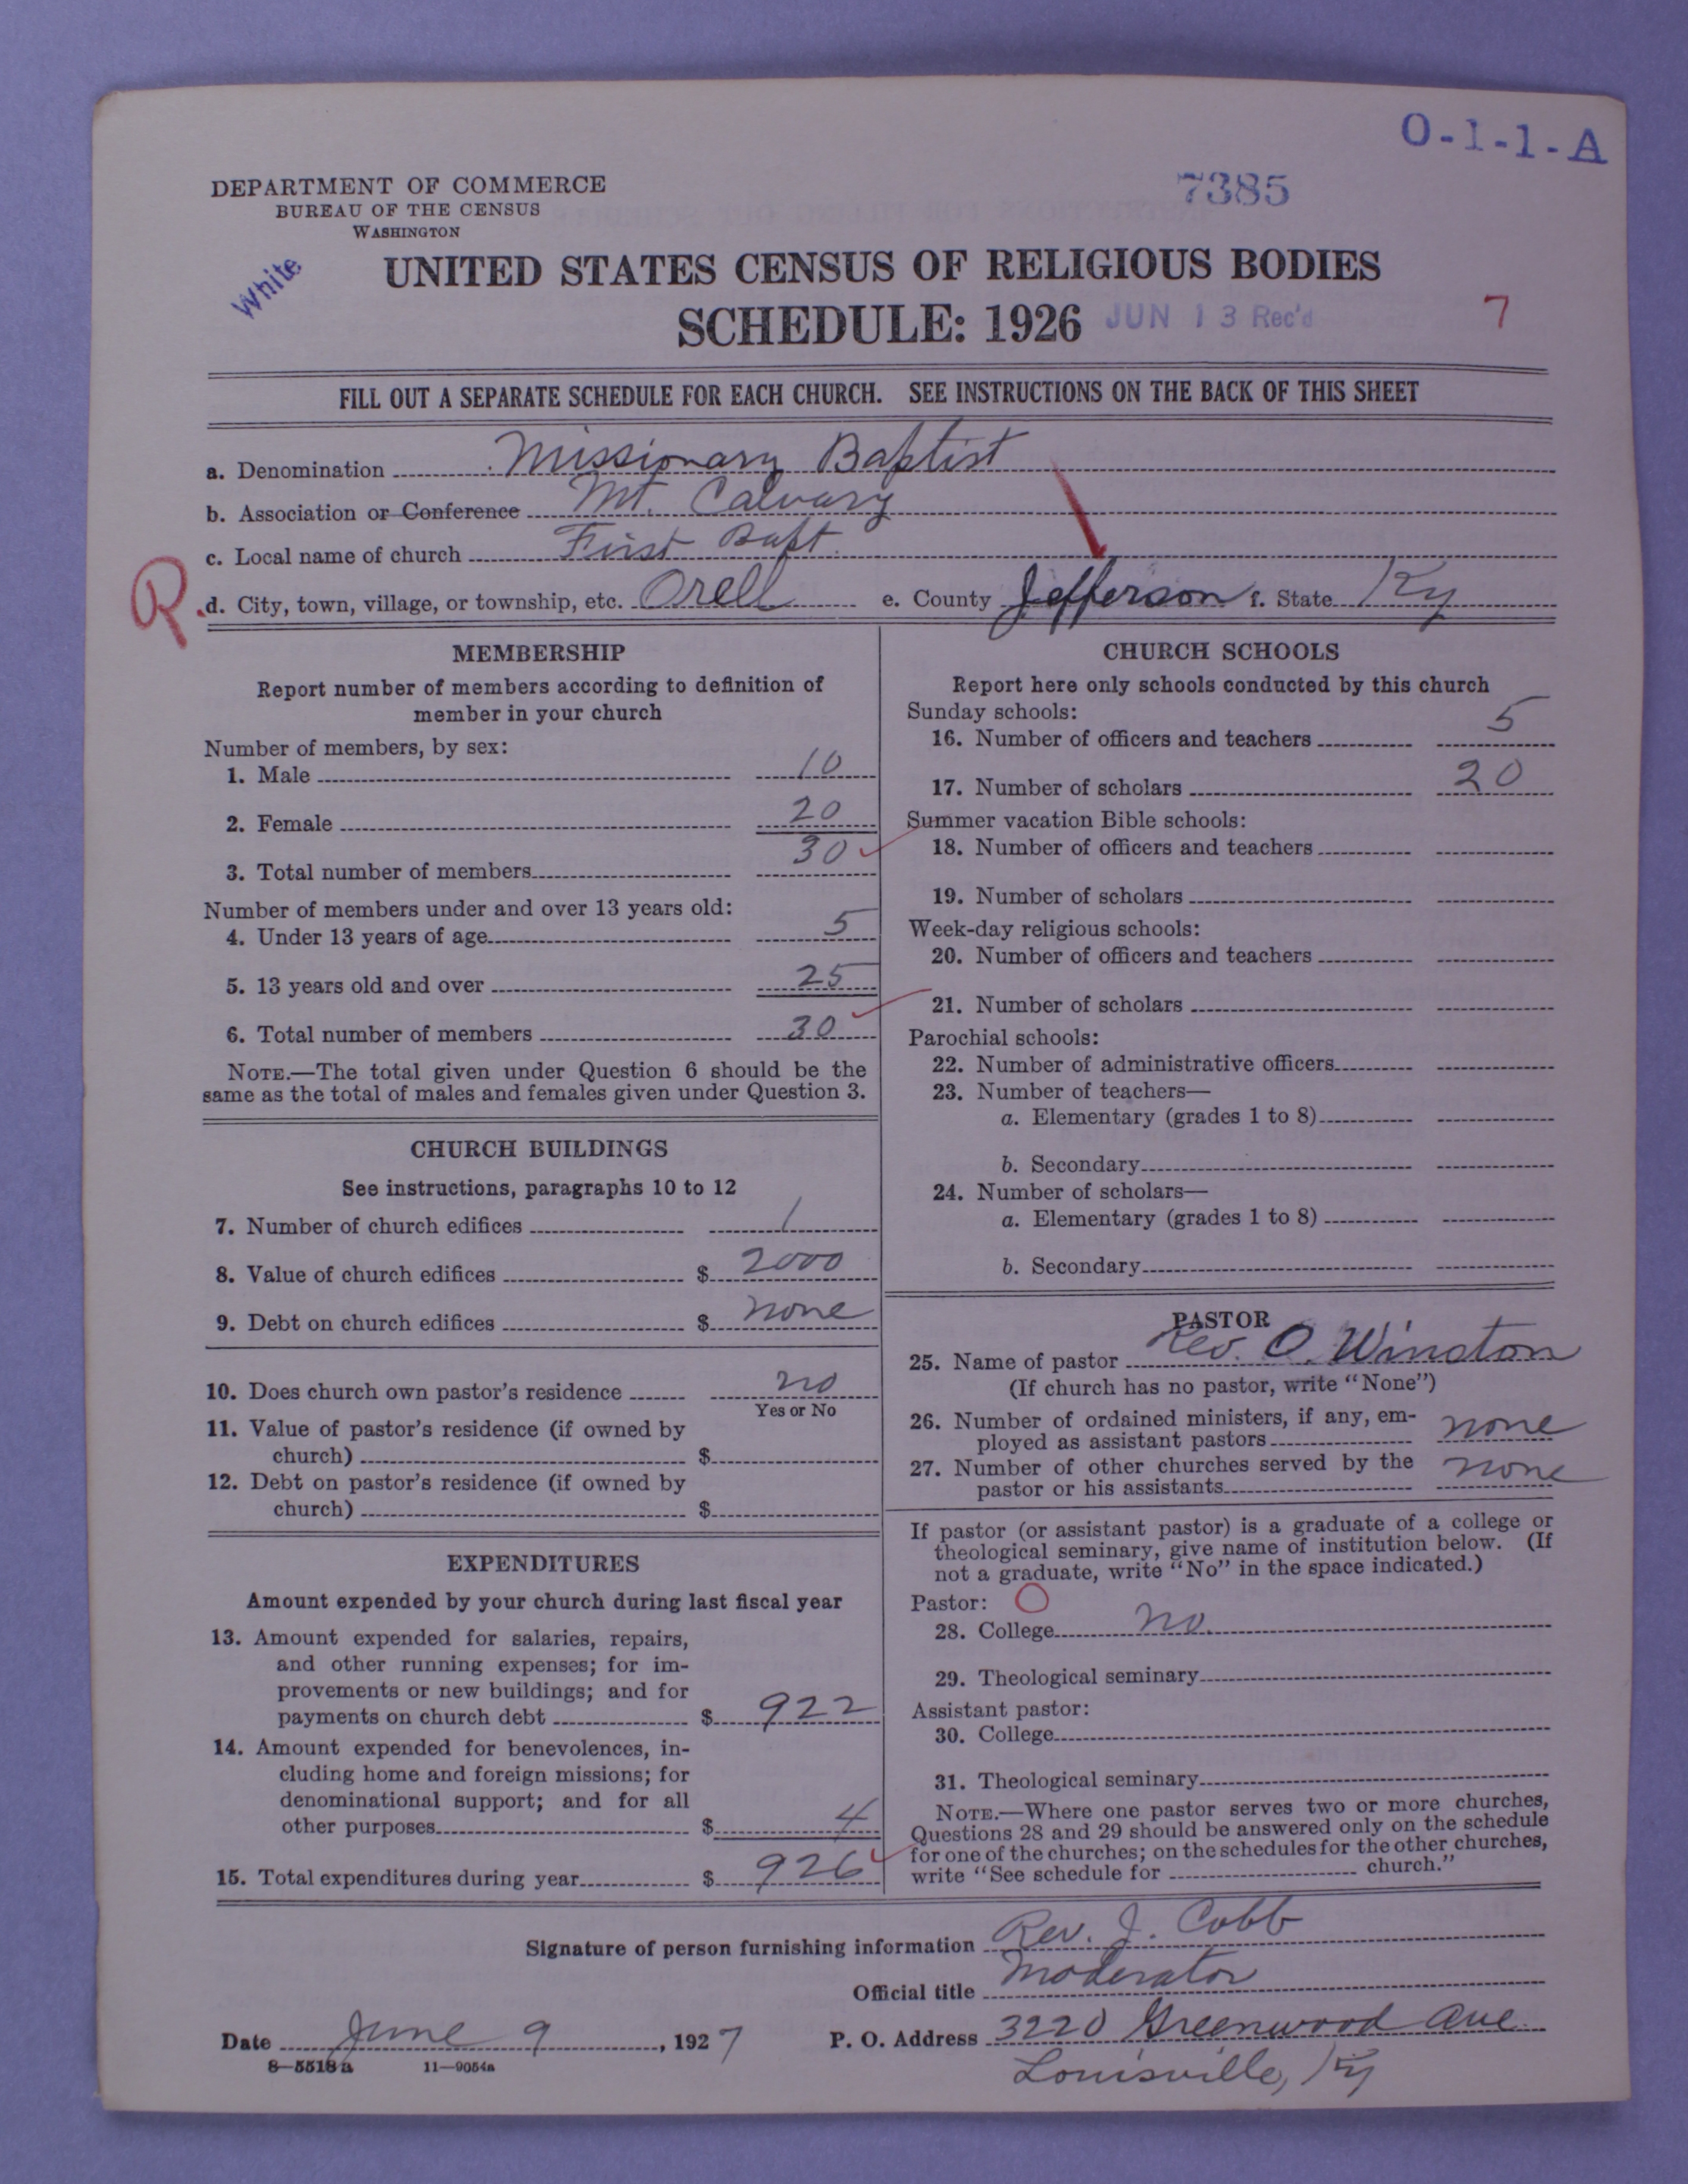 O-1-1-A
DEPARTMENT OF COMMERCE
BUREAU OF THE CENSUS
WASHINGTON
7385
White
UNITED STATES CENSUS OF RELIGIOUS BODIES
SCHEDULE: 1926
JUN 13 Rec'd
7
FILL OUT A SEPARATE SCHEDULE FOR EACH CHURCH. SEE INSTRUCTIONS ON THE BACK OF THIS SHEET
a. Denomination Missionary Baptist
b. Association or Conference Mt. Calvary
c. Local name of church First Bapt.
R.
d. City, town, village, or township, etc. Orell e. County Jefferson f. State Ky
MEMBERSHIP
Report number of members according to definition of
member in your church
Number of members, by sex:
1. Male 10
2. Female 20
3. Total number of members 30
Number of members under and over 13 years old:
4. Under 13 years of age 5
5. 13 years old and over 25
6. Total number of members 30
NOTE.—The total given under Question 6 should be the
same as the total of males and females given under Question 3.
CHURCH BUILDINGS
See instructions, paragraphs 10 to 12
7. Number of church edifices 1
8. Value of church edifices $ 2000
9. Debt on church edifices $ none
10. Does church own pastor's residence no
Yes or No
11. Value of pastor's residence (if owned by
church) $
12. Debt on pastor's residence (if owned by
church) $
EXPENDITURES
Amount expended by your church during last fiscal year
13. Amount expended for salaries, repairs,
and other running expenses; for im-
provements or new buildings; and for
payments on church debt $ 922
14. Amount expended for benevolences, in-
cluding home and foreign missions; for
denominational support; and for all
other purposes $ 4
15. Total expenditures during year $ 926
CHURCH SCHOOLS
Report here only schools conducted by this church
Sunday schools:
16. Number of officers and teachers 5
17. Number of scholars 20
Summer vacation Bible schools:
18. Number of officers and teachers
19. Number of scholars
Week-day religious schools:
20. Number of officers and teachers
21. Number of scholars
Parochial schools:
22. Number of administrative officers
23. Number of teachers—
a. Elementary (grades 1 to 8)
b. Secondary
24. Number of scholars—
a. Elementary (grades 1 to 8)
b. Secondary
PASTOR
25. Name of pastor Rev. O. Winston
(If church has no pastor, write "None")
26. Number of ordained ministers, if any, em-
ployed as assistant pastors none
27. Number of other churches served by the
pastor or his assistants none
If pastor (or assistant pastor) is a graduate of a college or
theological seminary, give name of institution below. (If
not a graduate, write "No" in the space indicated.)
Pastor: O
28. College no.
29. Theological seminary
Assistant pastor:
30. College
31. Theological seminary
NOTE.—Where one pastor serves two or more churches,
Questions 28 and 29 should be answered only on the schedule
for one of the churches; on the schedules for the other churches,
write "See schedule for church."
Signature of person furnishing information Rev. J. Cobb
Official title Moderator
Date June 9, 1927 P. O. Address 3220 Greenwood Ave.
8—5518a 11—9054a
Louisville, Ky